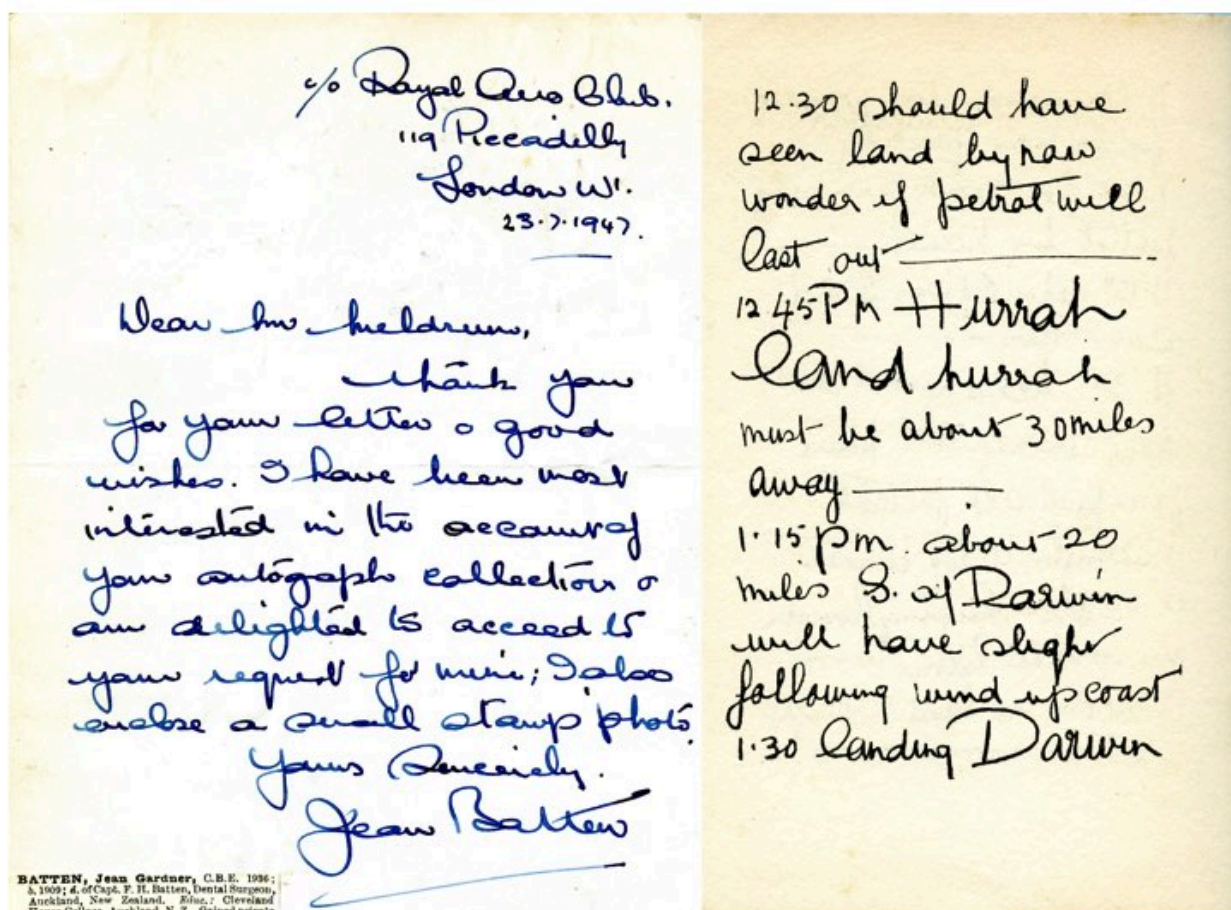 c/o Royal Aero Club.
119 Piccadilly
London W1.
23.7.1947.
Dear Mr Meldrum,
thank you
for your letter & good
wishes. I have been most
interested in the account of
your autograph collection &
am delighted to acceed to
your request for mine; I also
enclose a small stamp photo
Yours Sincerely.
Jean Batten
BATTEN, Jean Gardner, C.B.E. 1936;
b. 1909; d. of Capt. F. H. Batten, Dental Surgeon,
Auckland, New Zealand. Educ.: Cleveland
House College, Auckland, N.Z. Gained private
12.30 should have
seen land by now
wonder if petrol will
last out
12.45PM Hurrah
land hurrah
must be about 30 miles
away
1.15pm. about 20
miles S. of Darwin
will have slight
following wind up coast
1.30 landing Darwin